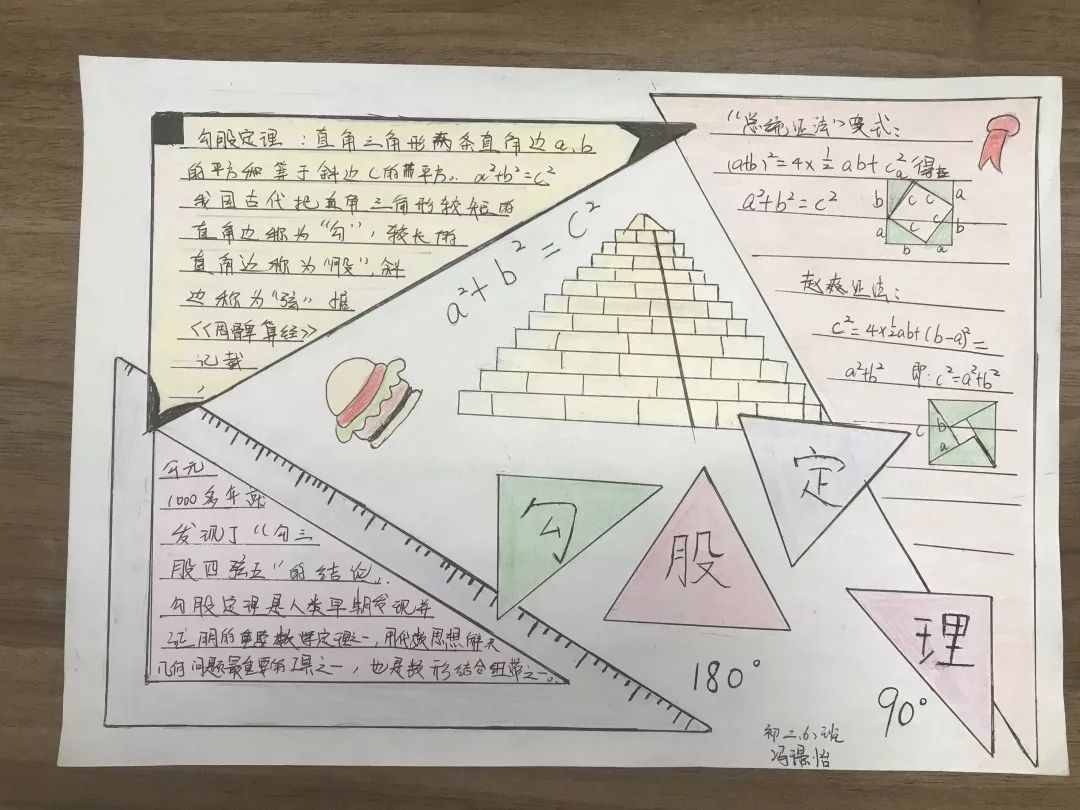 勾股定理：直角三角形两条直角边a、b
的平方和等于斜边c的平方。a²+b²=c²
我国古代把直角三角形较短的
直角边称为“勾”，较长的
直角边称为“股”，斜
边称为“弦”据
《周髀算经》
记载
，
公元
1000多年就
发现了“勾三
股四弦五”的结论。
勾股定理是人类早期发现并
证明的重要数学定理之一，用代数思想解决
几何问题最重要的工具之一，也是数形结合纽带之一。
a²+b²=c²
勾
股
定
理
180°
90°
“总统证法”变式：
(a+b)²=4×½ab+c²得
a²+b²=c²
a
b
c
c
a
c
b
a
c
b
a
赵爽证法：
c²=4×½ab+(b-a)²=
a²+b² 即：c²=a²+b²
c
b
a
初二.6.班